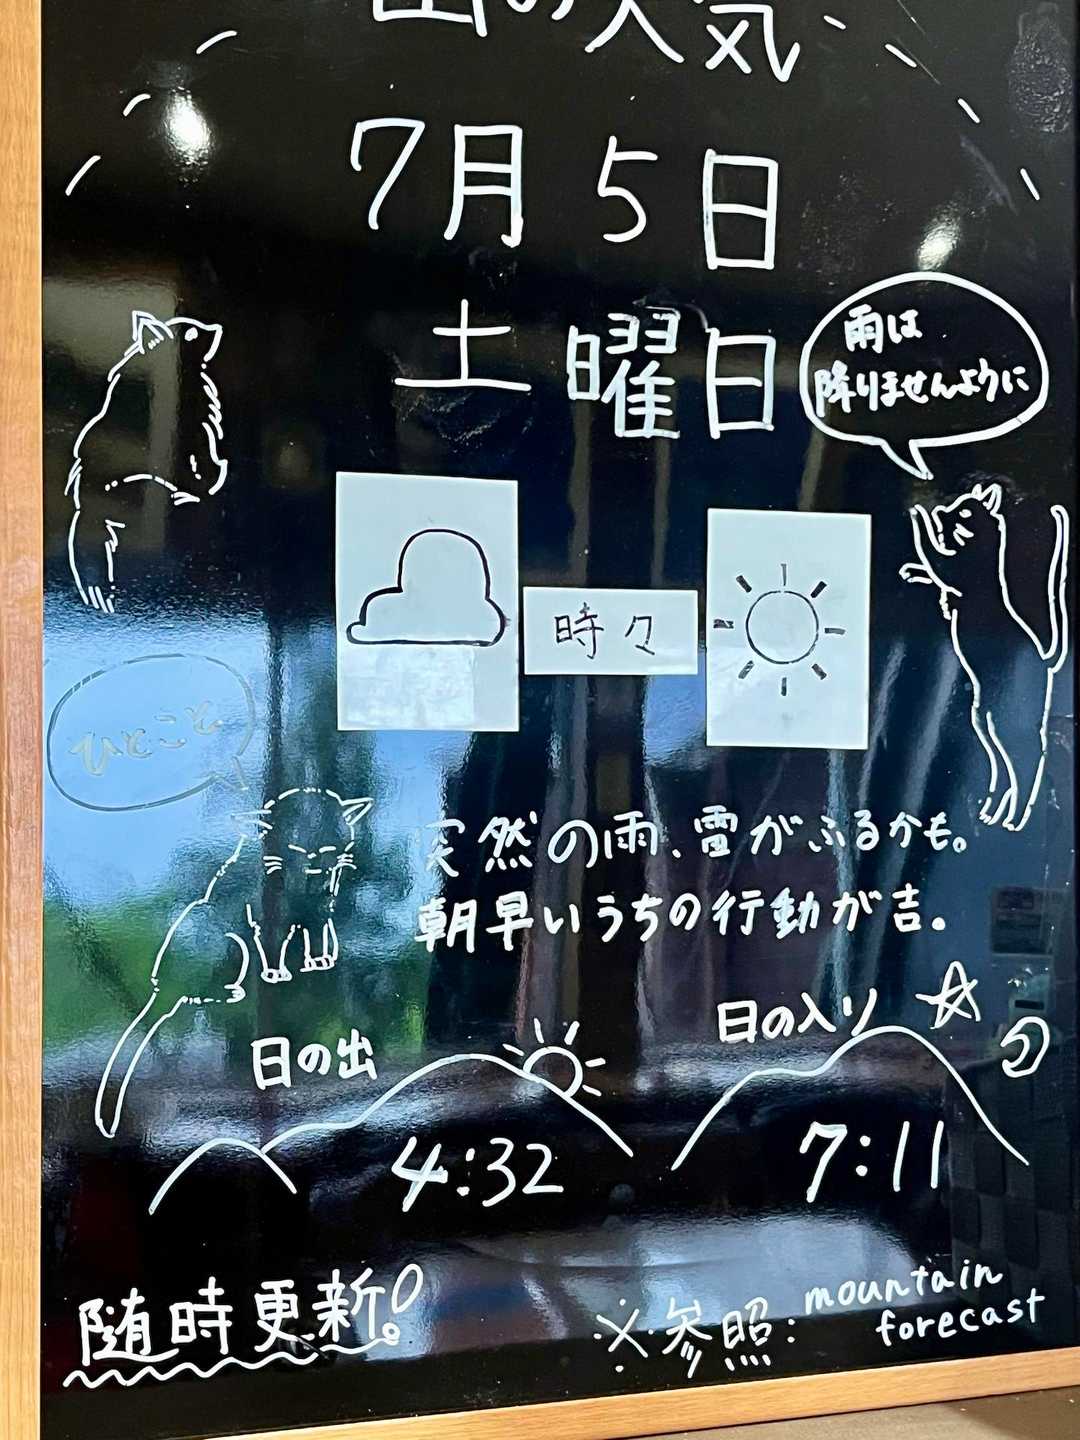 山の天気
7月5日
土曜日
雨は
降りませんように
時々
ひとこと
突然の雨、雷がふるかも。
朝早いうちの行動が吉。
日の出
日の入り
4:32
7:11
随時更新!
※参照:mountain
forecast